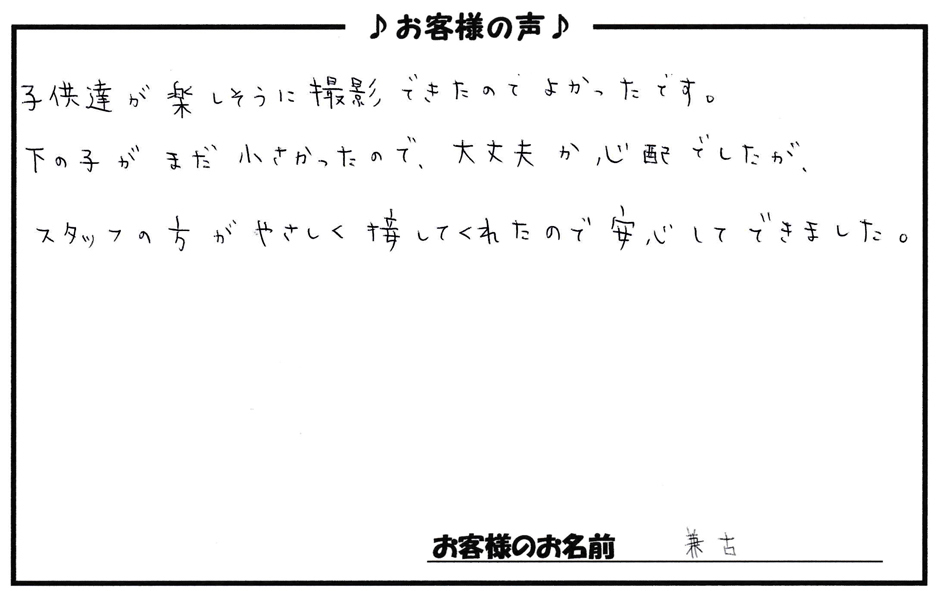 ♪お客様の声♪
子供達が楽しそうに撮影できたのでよかったです。
下の子がまだ小さかったので、大丈夫か心配でしたが、
スタッフの方がやさしく接してくれたので安心してできました。
お客様のお名前 兼古